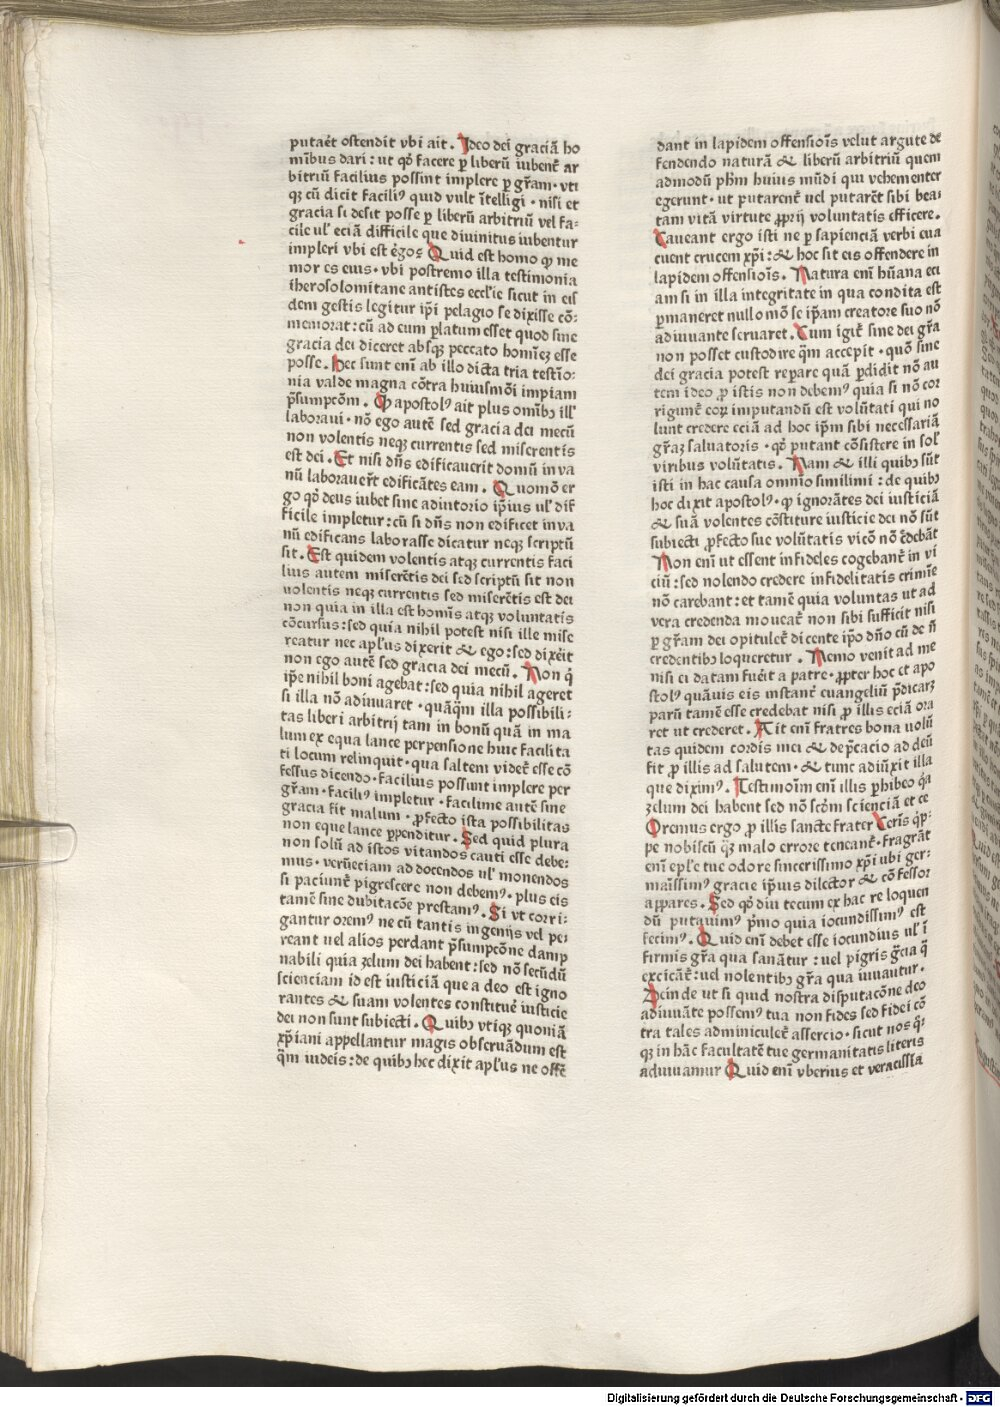 putaēt ostendit vbi ait. Ideo dei graciā ho
mībus dari: ut qḋ facere ꝑ liberū iubent᷑ ar
bitriū facilius possint implere ꝑ gr̄am. vti
qꝫ cū dicit facili⁹ quid vult ītelligi. nisi et
gracia si desit posse ꝑ liberū arbitriū vel fa⸗
cile ul᷑ eciā difficile que diuinitus iubentur
impleri vbi est ergo: Quid est homo ꝙ me
mor es eius. vbi postremo illa testimonia
iherosolomitane antistes eccl'ie sicut in eis
dem gestis legitur ip̄i pelagio se dixisse cō⸗
memorat: cū ad eum ꝑlatum esset quod sine
gracia dei diceret absqꝫ peccato homīeꝫ esse
posse. Hec sunt enī ab illo dicta tria testīo⸗
nia valde magna cōtra huiusmōi impiam
p̄sumpcōm. Qꝫ apostol⁹ ait plus omībꝫ ill'
laboraui. nō ego autē sed gracia dei mecū
non volentis neqꝫ currentis sed miserentis
est dei. Et nisi dn̄s edificauerit domū in va
nū laborauer̄t edificātes eam. Quomō er
go qḋ deus iubet sine adiutorio ip̄ius ul᷑ dif
ficile impletur: cū si dn̄s non edificet in va
nū edificans laborasse dicatur neqꝫ scriptū
sit. Est quidem volentis atqꝫ currentis faci
lius autem miserētis dei sed scriptū sit non
uolentis neqꝫ currentis sed miserētis est dei
non quia in illa est homīs atqꝫ voluntatis
cōcursus: sed quia nihil potest nisi ille mise
reatur nec apl'us dixerit & ego: sed dixēit
non ego autē sed gracia dei mecū. Non q̇
ip̄e nihil boni agebat: sed quia nihil ageret
si illa nō adiuuaret. quāq̄m illa possibili⸗
tas liberi arbitrij tam in bonū quā in ma
lum ex equa lance perpensione huic facilita
ti locum relinquit. qua saltem videt᷑ esse cō
fessus dicendo. facilius possunt implere per
gr̄am. facili⁹ impletur. facilime autē sine
gracia fit malum. ꝓfecto ista possibilitas
non eque lance ꝑpenditur. Sed quid plura
non solū ad istos vitandos cauti esse debe⸗
mus. verūeciam ad docendos ul᷑ monendos
si paciunt᷑ pigrescere non debem⁹. plus eis
tamē sine dubitacōe prestam⁹. Si vt corri⸗
gantur orem⁹ ne cū tantis ingenijs vel pe⸗
reant uel alios perdant p̄sumpcōne damp
nabili quia zelum dei habent: sed nō secūdū
scienciam id est iusticiā que a deo est igno
rantes & suam volentes constitue᷑ iusticie
dei non sunt subiecti. Quibꝫ vtiqꝫ quoniā
xp̄iani appellantur magis obseruādum est
q̄m iudeis: de quibꝫ hec dixit apl'us ne offē
dant in lapidem offensioīs velut argute de
fendendo naturā & liberū arbitriū quem
admodū ph̄m huius mūdi qui vehementer
egerunt. ut putarent᷑ uel putarēt sibi bea⸗
tam vitā virtute ꝓprij voluntatis efficere.
Caueant ergo isti ne ꝑ sapienciā verbi eua
cuent crucem xp̄i: & hoc sit eis offendere in
lapidem offensioīs. Natura enī hūana eci
am si in illa integritate in qua condita est
ꝑmaneret nullo mō se ip̄am creatore suo nō
adiuuante seruaret. Cum igit᷑ sine dei gr̄a
non posset custodire q̄m accepit. quō sine
dei gracia potest reꝑare quā ꝑdidit nō au
tem ideo ꝓ istis non debem⁹ quia si nō cor
rigunt᷑ eoꝝ imputandū est volūtati qui no
lunt credere eciā ad hoc ip̄m sibi necessariā
gr̄aꝫ saluatoris. qḋ putant cōsistere in sol'
viribus volūtatis. Nam & illi quibꝫ sūt
isti in hac causa omnīo similimi: de quibꝫ
hoc dixit apostol⁹. ꝙ ignorātes dei iusticiā
& suā volentes cōstiture iusticie dei nō sūt
subiecti ꝓfecto sue volūtatis vicō nō c̄debāt
Non enī ut essent infideles cogebant᷑ in vi
ciū: sed nolendo credere infidelitatis crimīe
nō carebant: et tamē quia voluntas ut ad
vera credenda moueat᷑ non sibi sufficit nisi
ꝑ gr̄am dei opitulet᷑ dicente ip̄o dn̄o cū de n̄
credentibꝫ loqueretur. Nemo venit ad me
nisi ei datam fuēit a patre. ꝓpter hoc et apo
stol⁹ quāuis eis instant᷑ euangeliū p̄dicarꝫ
parū tamē esse credebat nisi ꝓ illis eciā ora
ret ut crederet. Ait enī fratres bona uolū
tas quidem cordis mei & dep̄cacio ad deū
fit ꝓ illis ad salutem. & tunc adiūxit illa
que dixim⁹. Testimoīm enī illis ꝑhibeo q̇a
zelum dei habent sed nō scd̄m scienciā et ce
Oremus ergo ꝓ illis sancte frater Ceris q̇p⸗
pe nobiscū q̇ꝫ malo errore teneant᷑. fragrāt
enī ep̄l'e tue odore sincerissimo xp̄i ubi ger⸗
maīssim⁹ gracie ip̄ius dilector & cōfessor
appares. Sed qḋ diu tecum ex hac re loquen
dū putauim⁹ p̄mo quia iocundissim⁹ est
fecim⁹. Quid enī debet esse iocundius ul᷑ ī
firmis gr̄a qua sanātur: uel pigris gr̄cia q̄
excicāt᷑: uel nolentibꝫ gr̄a qua iuuautur.
Deinde ut si quid nostra disputacōne deo
adiuuāte possem⁹ tua non fides sed fidei cō
tra tales adminiculet᷑ assercio. sicut nos q̇
qꝫ in hāc facultatē tue germanitatis literis
adiuuamur Quid enī vberius et veracissīa
Digitalisierung gefördert durch die Deutsche Forschungsgemeinschaft - DFG